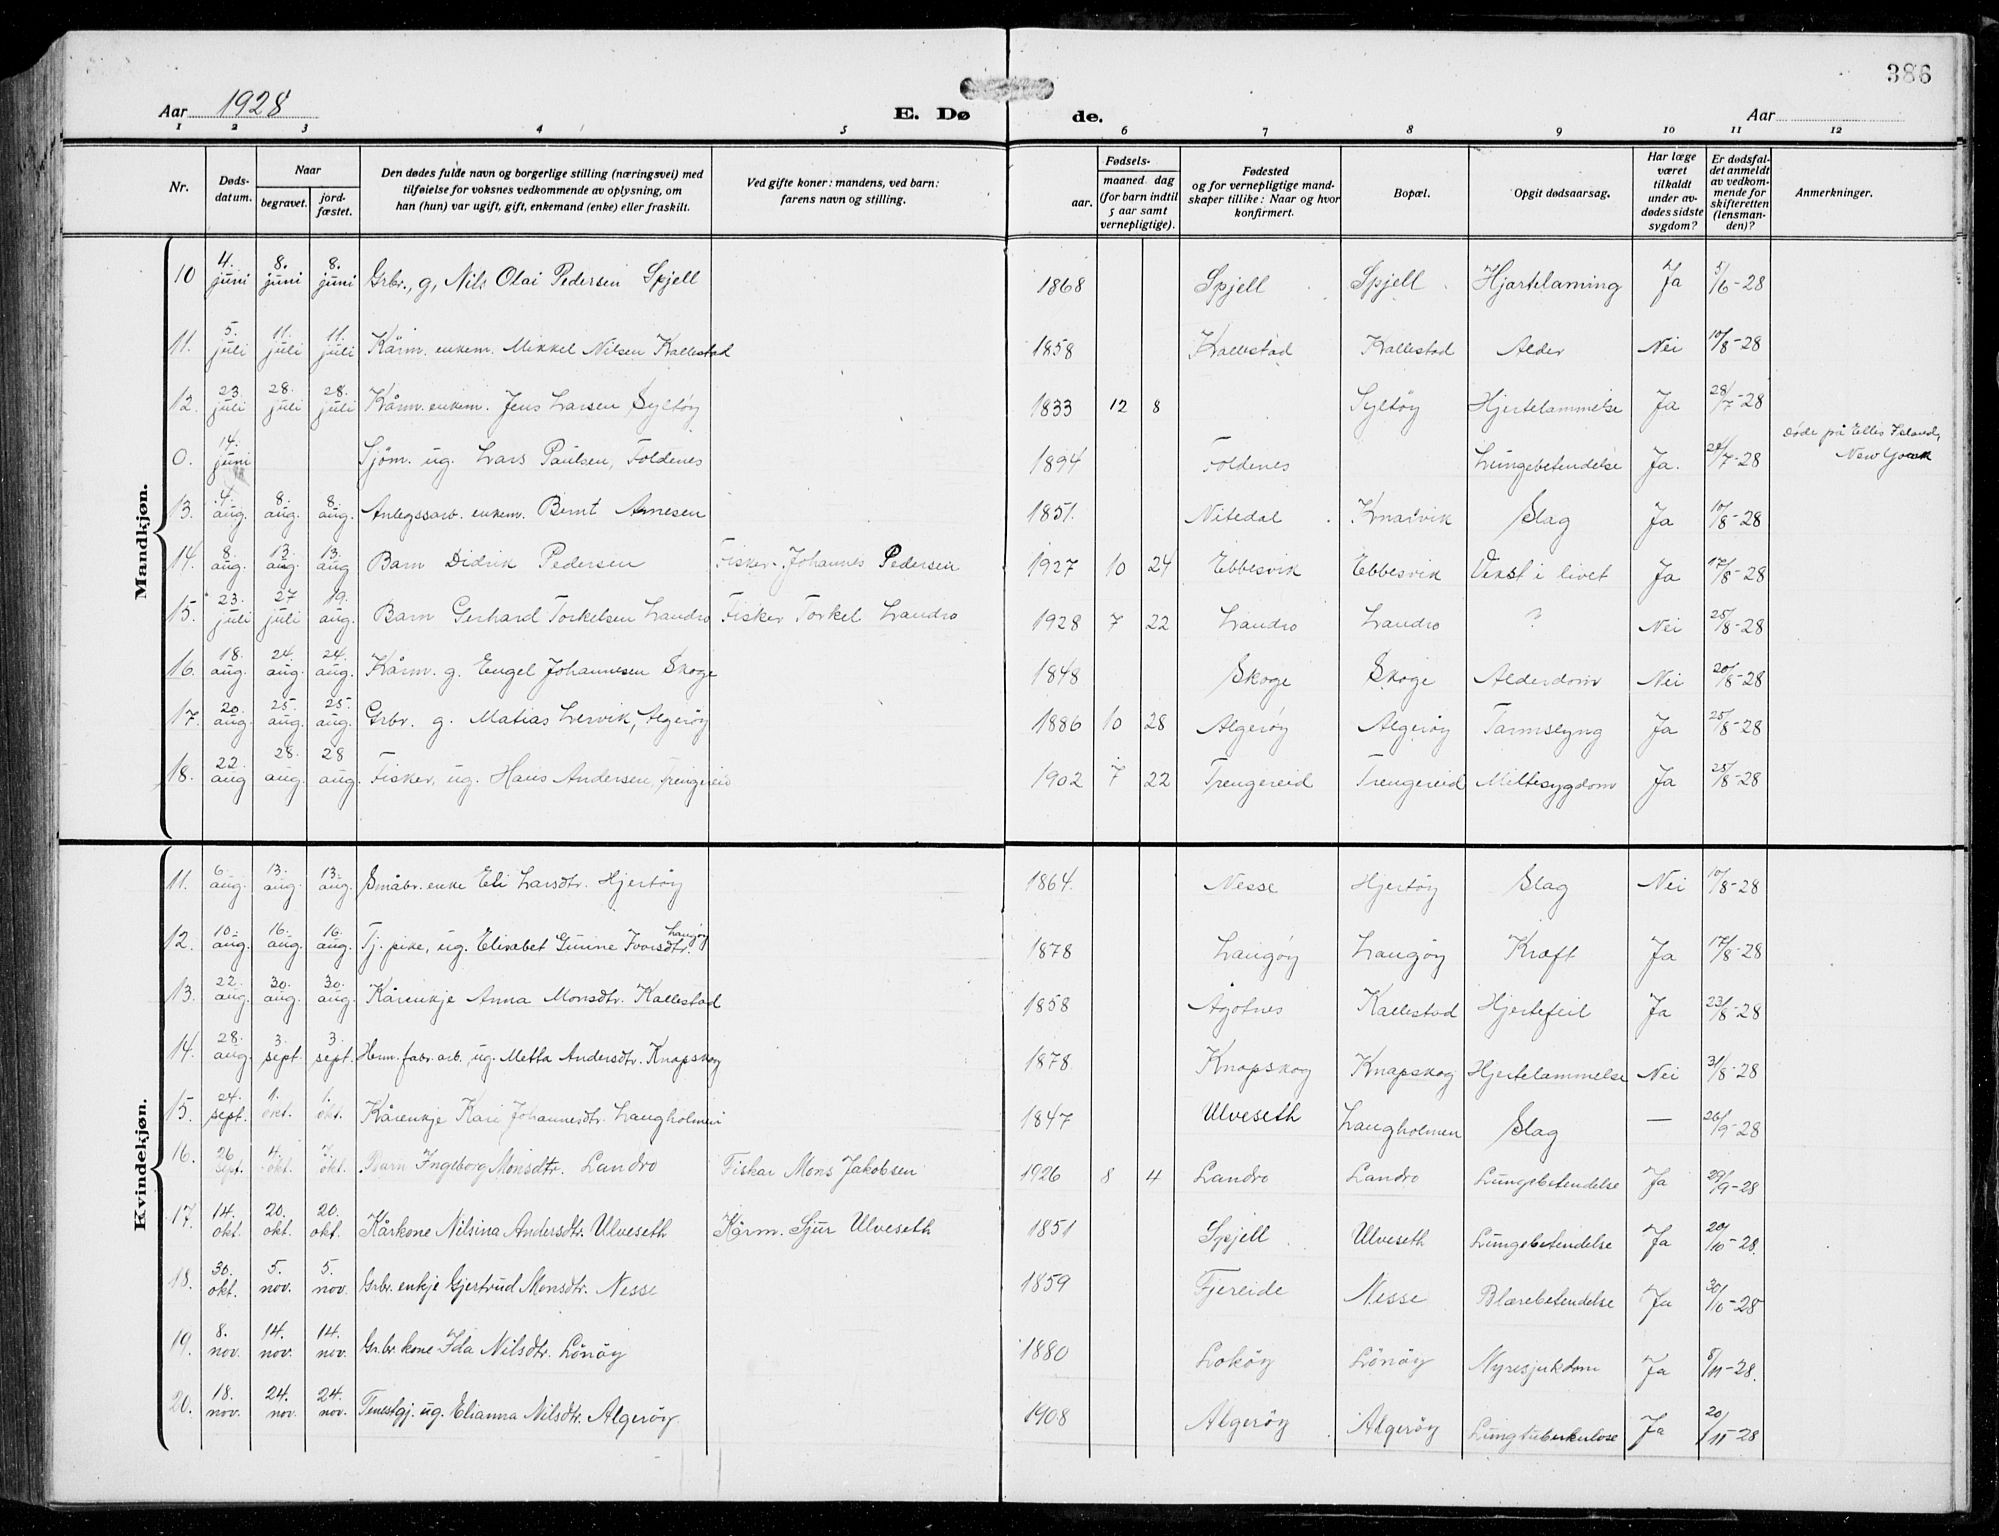 386
Aar 1928 E. Dø de. Aar
1 2 3 4 5 6 7 8 9 10 11 12
Nr. Døds-datum. Naar begravet. jord-fæstet. Den dødes fulde navn og borgerlige stilling (næringsvei) med tilføielse for voksnes vedkommende av oplysning, om han (hun) var ugift, gift, enkemand (enke) eller fraskilt. Ved gifte koner: mandens, ved barn: farens navn og stilling. Fødsels- aar. maaned dag (for barn indtil 5 aar samt vernepligtige). Fødested og for vernepligtige mand-skaper tillike: Naar og hvor konfirmert. Bopæl. Opgit dødsaarsag. Har læge været tilkaldt under av-dødes sidste sygdom? Er dødsfal-det anmeldt av vedkom-mende for skifteretten (lensman-den)? Anmerkninger.
Mandkjøn.
10 4. juni 8. juni 8. juni Grbr., g, Nils Olai Pedersen Spjell 1868 Spjell Spjell Hjartelaming Ja 5/6-28
11. 5. juli 11. juli 11. juli Kårm. enkem. Mikkel Nilsen Kallestad 1858 Kallestad Kallestad Alder Nei 10/8-28
12. 23. juli 28. juli 28. juli Kårm. enkem. Jens Larsen Syltøy 1833 12 8 Syltøy Hjertelammelse Ja 28/7-28
0. 14. juni Sjøm. ug. Lars Paulsen, Foldenes 1894 Foldenes Lungebetendelse Ja. 24/7-28 Døde på Ellis Island, New York
13. 4. aug. 8. aug. 8. aug. Anlegssarb. enkem. Bernt Arnesen 1851. Nitedal Knarvik Slag Ja 10/8-28
14. 8. aug. 13. aug. 13. aug Barn Didrik Pedersen Fisker Johannes Pedersen 1927 10 24 Ebbesvik Ebbesvik Vekst i livet Ja 17/8-28
15. 23. juli 27 juli 19. aug. Barn Gerhard Torkelsen Landro Fisker Torkel Landro 1928 7 22 Landro Landro ? Nei 25/8-28
16. 18. aug. 24. aug. 24. aug. Kårm. g. Engel Johannesen Skoge 1848 Skoge Skoge Alderdom Nei 20/8-28
17. 20. aug 25. aug. 25. aug. Grbr. g. Matias Lervik, Algerøy 1886 10 28 Algerøy Algerøy Tarmslyng Ja 25/8-28
18. 22. aug 28. aug. 28 aug. Fisker, ug. Hans Andersen, Trengereid 1902 7 22 Trengereid Trengereid Miltesygdom Ja 25/8-28
Kvindekjøn.
11. 6. aug. 13. aug. 13. aug. Småbr. enke Eli Larsdtr. Hjertøy 1864. Nesse Hjertøy Slag Nei 10/8-28
12. 10. aug. 16. aug. 16. aug. Tj. pike, ug. Elisabet Gurine Ivarsdtr. Langøy 1878 Langøy Langøy Kræft Ja 17/8-28
13. 22. aug. 30. aug. 30. aug. Kårenkje Anna Monsdtr. Kallestad 1858 Ågotnes Kallestad Hjertefeil Ja 23/8-28
14. 28. aug. 3. sept. 3. sept. Herm. fabr. arb., ug. Metta Andersdtr. Knapskog 1878 Knapskog Knapskog Hjertelammelse Nei 31/8-28
15. 24. sept. 1. okt. 1. okt. Kårenkje Kari Johannesdtr. Langholmen 1847 Ulveseth Langholmen Slag — 26/9-28
16. 26. sept. 4. okt. 7. okt. Barn Ingeborg Monsdtr. Landro Fiskar Mons Jakobsen 1926 8 4 Landro Landro Lungebetendelse Ja 29/9-28
17. 14. okt. 20. okt. 20. okt. Kårkone Nilsina Andersdtr. Ulveseth Kårm. Sjur Ulveseth 1851 Spjell Ulveseth Lungebetendelse Ja 20/10-28.
18. 30. okt. 5. nov. 5. nov. Grbr. enkje Gjertrud Monsdtr. Nesse 1859 Fjereide Nesse Blærebetendelse Ja 30/10-28
19. 8. nov. 14. nov. 14. nov. Gr.br. kone Ida Nilsdtr. Lönöy 1880 Lokøy Lönöy Nyresjukdom Ja 8/11-28.
20. 18. nov. 24. nov. 24. nov. Tenestgj. ug. Elianna Nilsdtr. Algerøy 1908 Algerøy Algerøy Lungtuberkulose Ja 20/11-28